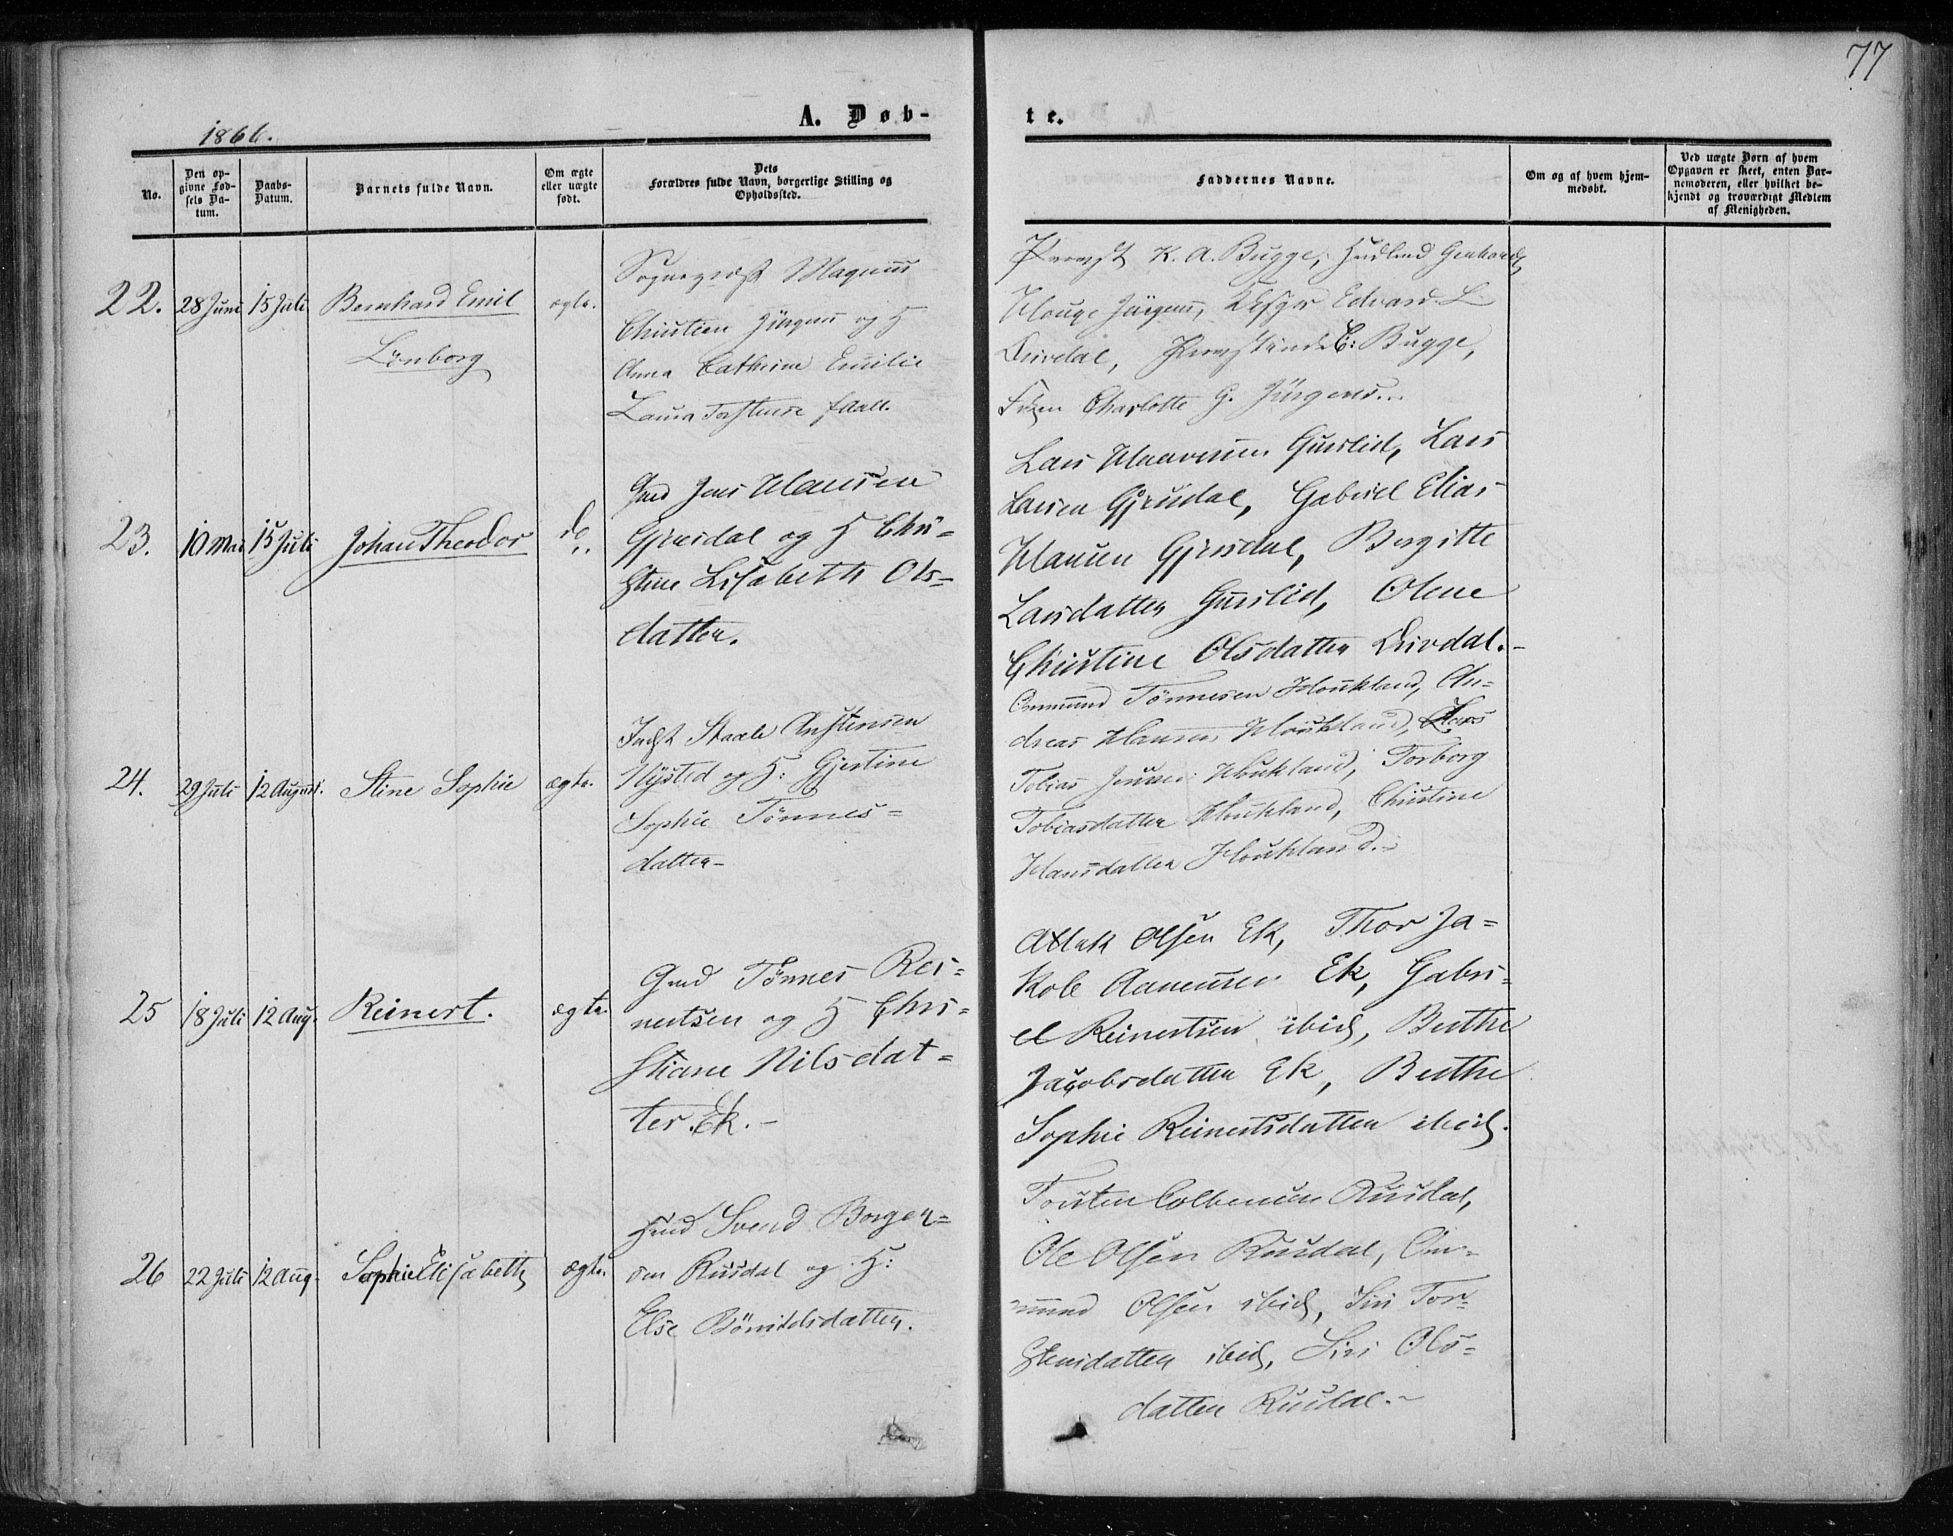 77
1866.
A. Døb-
te.
No.
Den op-
givne Fød-
sels Da-
tum.
Daabs-
Datum.
Barnets fulde Navn.
Om ægte
eller uægte
født.
Dets
Forældres fulde Navn, borgerlige Stilling og
Opholdssted.
Faddernes Navne.
Om og af hvem hjem-
medøbt.
Ved uægte Børn af hvem
Opgaven er skeet, enten Bar-
nemoderen, eller hvilket be-
kjendt og troværdigt Medlem
af Menigheden.
22.
28 Juni
15 Juli
Bernhard Emil
Lønborg
ægte.
Sognepræst Magnus
Christian Jürgens og H
Anna Cathrine Emilie
Laura
Provst K. A. Bugge,
Hauge Jürgens, Edvard L
Dirdal, B: Bugge,
Frøken Charlotte G. Jürgens..
23.
10 Mai
15 Juli
Johan Theodor
do
Gmd Jens Hansen
Gjersdal og H Chri-
stine Lisabeth Ols-
datter.
Lars Haaversen Gursliд, Lars
Larsen Gjersdal, Gabriel Elias
Hansen Gjersdal, Birgitte
Larsdatter Gurslid, Olene
Christine Olsdatter Dirdal.-
24.
29 Juli
12 August.
Stine Sophie
ægte.
Indst Staale Anstensen
Nysted og H: Gjertine
Sophie Tønnes-
datter-
Ommund Tønnesen Houkland, An-
dreas Hansen Houkland,
Tobias Jensen Houkland, Torborg
Tobiasdatter Houkland, Christine
Hansdatter Houkland.-
25
18 Juli
12 Aug.
Reinert.
ægte.
Gmd Tønnes Rei-
nertsen og H Chri-
stiane Nilsdat-
ter. Ek.-
Atlak Olsen Ek, Thor Ja-
kob Aanensen Ek, Gabri-
el Reinertsen ibid, Berthe
Jacobsdatter Ek, Berthe
Sophie Reinertsdatter ibid.
26
22 Juli
12 Aug.
Sophie Elisabeth
ægte.
Hmd Svend Borger-
sen Rusdal og H:
Else Bømildsdatter.
Torsten Colbensen Rusdal,
Ole Olsen Rusdal, Om-
mund Olsen ibid, Siri Tor-
stensdatter ibid, Siri Ols-
datter Rusdal.-